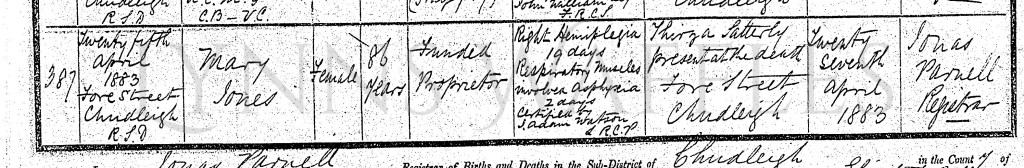 Chudleigh
R.S.D
C.B – V.C.
John William
F.R.C.S.
Chudleigh
387
Twenty fifth
April
1883
Fore Street
Chudleigh
R.S.D
Mary
Jones
Female
86
years
Funded
Proprietor
Right Hemiplegia
19 days
Respiratory Muscles
involved Asphyxia
2 days
Certified by
J. Adam Watson
L.R.C.P.
Thirza Satterly
present at the death
Fore Street
Chudleigh
Twenty
seventh
April
1883
Jonas
Parnell
Registrar
Jonas Parnell
Registrar of Births and Deaths in the Sub-District of
Chudleigh
in the County of